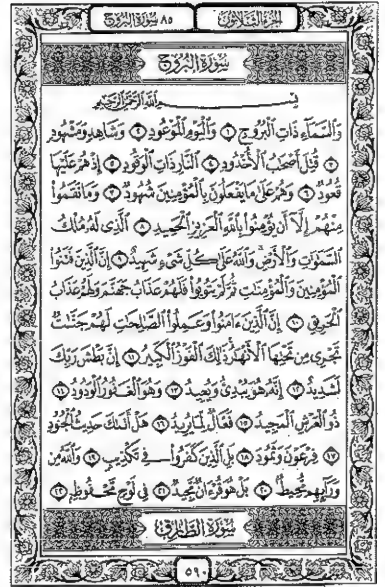 الجزء الثلاثون ٨٥ سورة البروج
سورة البروج
بسم الله الرحمن الرحيم
وَالسَّمَآءِ ذَاتِ الْبُرُوجِ ١ وَالْيَوْمِ الْمَوْعُودِ ٢ وَشَاهِدٍ وَمَشْهُودٍ
٣ قُتِلَ أَصْحَٰبُ الْأُخْدُودِ ٤ النَّارِ ذَاتِ الْوَقُودِ ٥ إِذْ هُمْ عَلَيْهَا
قُعُودٌ ٦ وَهُمْ عَلَىٰ مَا يَفْعَلُونَ بِالْمُؤْمِنِينَ شُهُودٌ ٧ وَمَا نَقَمُوا
مِنْهُمْ إِلَّآ أَن يُؤْمِنُوا بِاللَّهِ الْعَزِيزِ الْحَمِيدِ ٨ الَّذِي لَهُ مُلْكُ
السَّمَٰوَٰتِ وَالْأَرْضِ وَاللَّهُ عَلَىٰ كُلِّ شَىْءٍ شَهِيدٌ ٩ إِنَّ الَّذِينَ فَتَنُوا
الْمُؤْمِنِينَ وَالْمُؤْمِنَٰتِ ثُمَّ لَمْ يَتُوبُوا فَلَهُمْ عَذَابُ جَهَنَّمَ وَلَهُمْ عَذَابُ
الْحَرِيقِ ١٠ إِنَّ الَّذِينَ ءَامَنُوا وَعَمِلُوا الصَّٰلِحَٰتِ لَهُمْ جَنَّٰتٌ
تَجْرِي مِن تَحْتِهَا الْأَنْهَٰرُ ذَٰلِكَ الْفَوْزُ الْكَبِيرُ ١١ إِنَّ بَطْشَ رَبِّكَ
لَشَدِيدٌ ١٢ إِنَّهُ هُوَ يُبْدِئُ وَيُعِيدُ ١٣ وَهُوَ الْغَفُورُ الْوَدُودُ ١٤
ذُو الْعَرْشِ الْمَجِيدُ ١٥ فَعَّالٌ لِّمَا يُرِيدُ ١٦ هَلْ أَتَىٰكَ حَدِيثُ الْجُنُودِ
١٧ فِرْعَوْنَ وَثَمُودَ ١٨ بَلِ الَّذِينَ كَفَرُوا فِي تَكْذِيبٍ ١٩ وَاللَّهُ مِن
وَرَآئِهِم مُّحِيطٌ ٢٠ بَلْ هُوَ قُرْءَانٌ مَّجِيدٌ ٢١ فِي لَوْحٍ مَّحْفُوظٍ ٢٢
سورة الطارق
٥٩٠